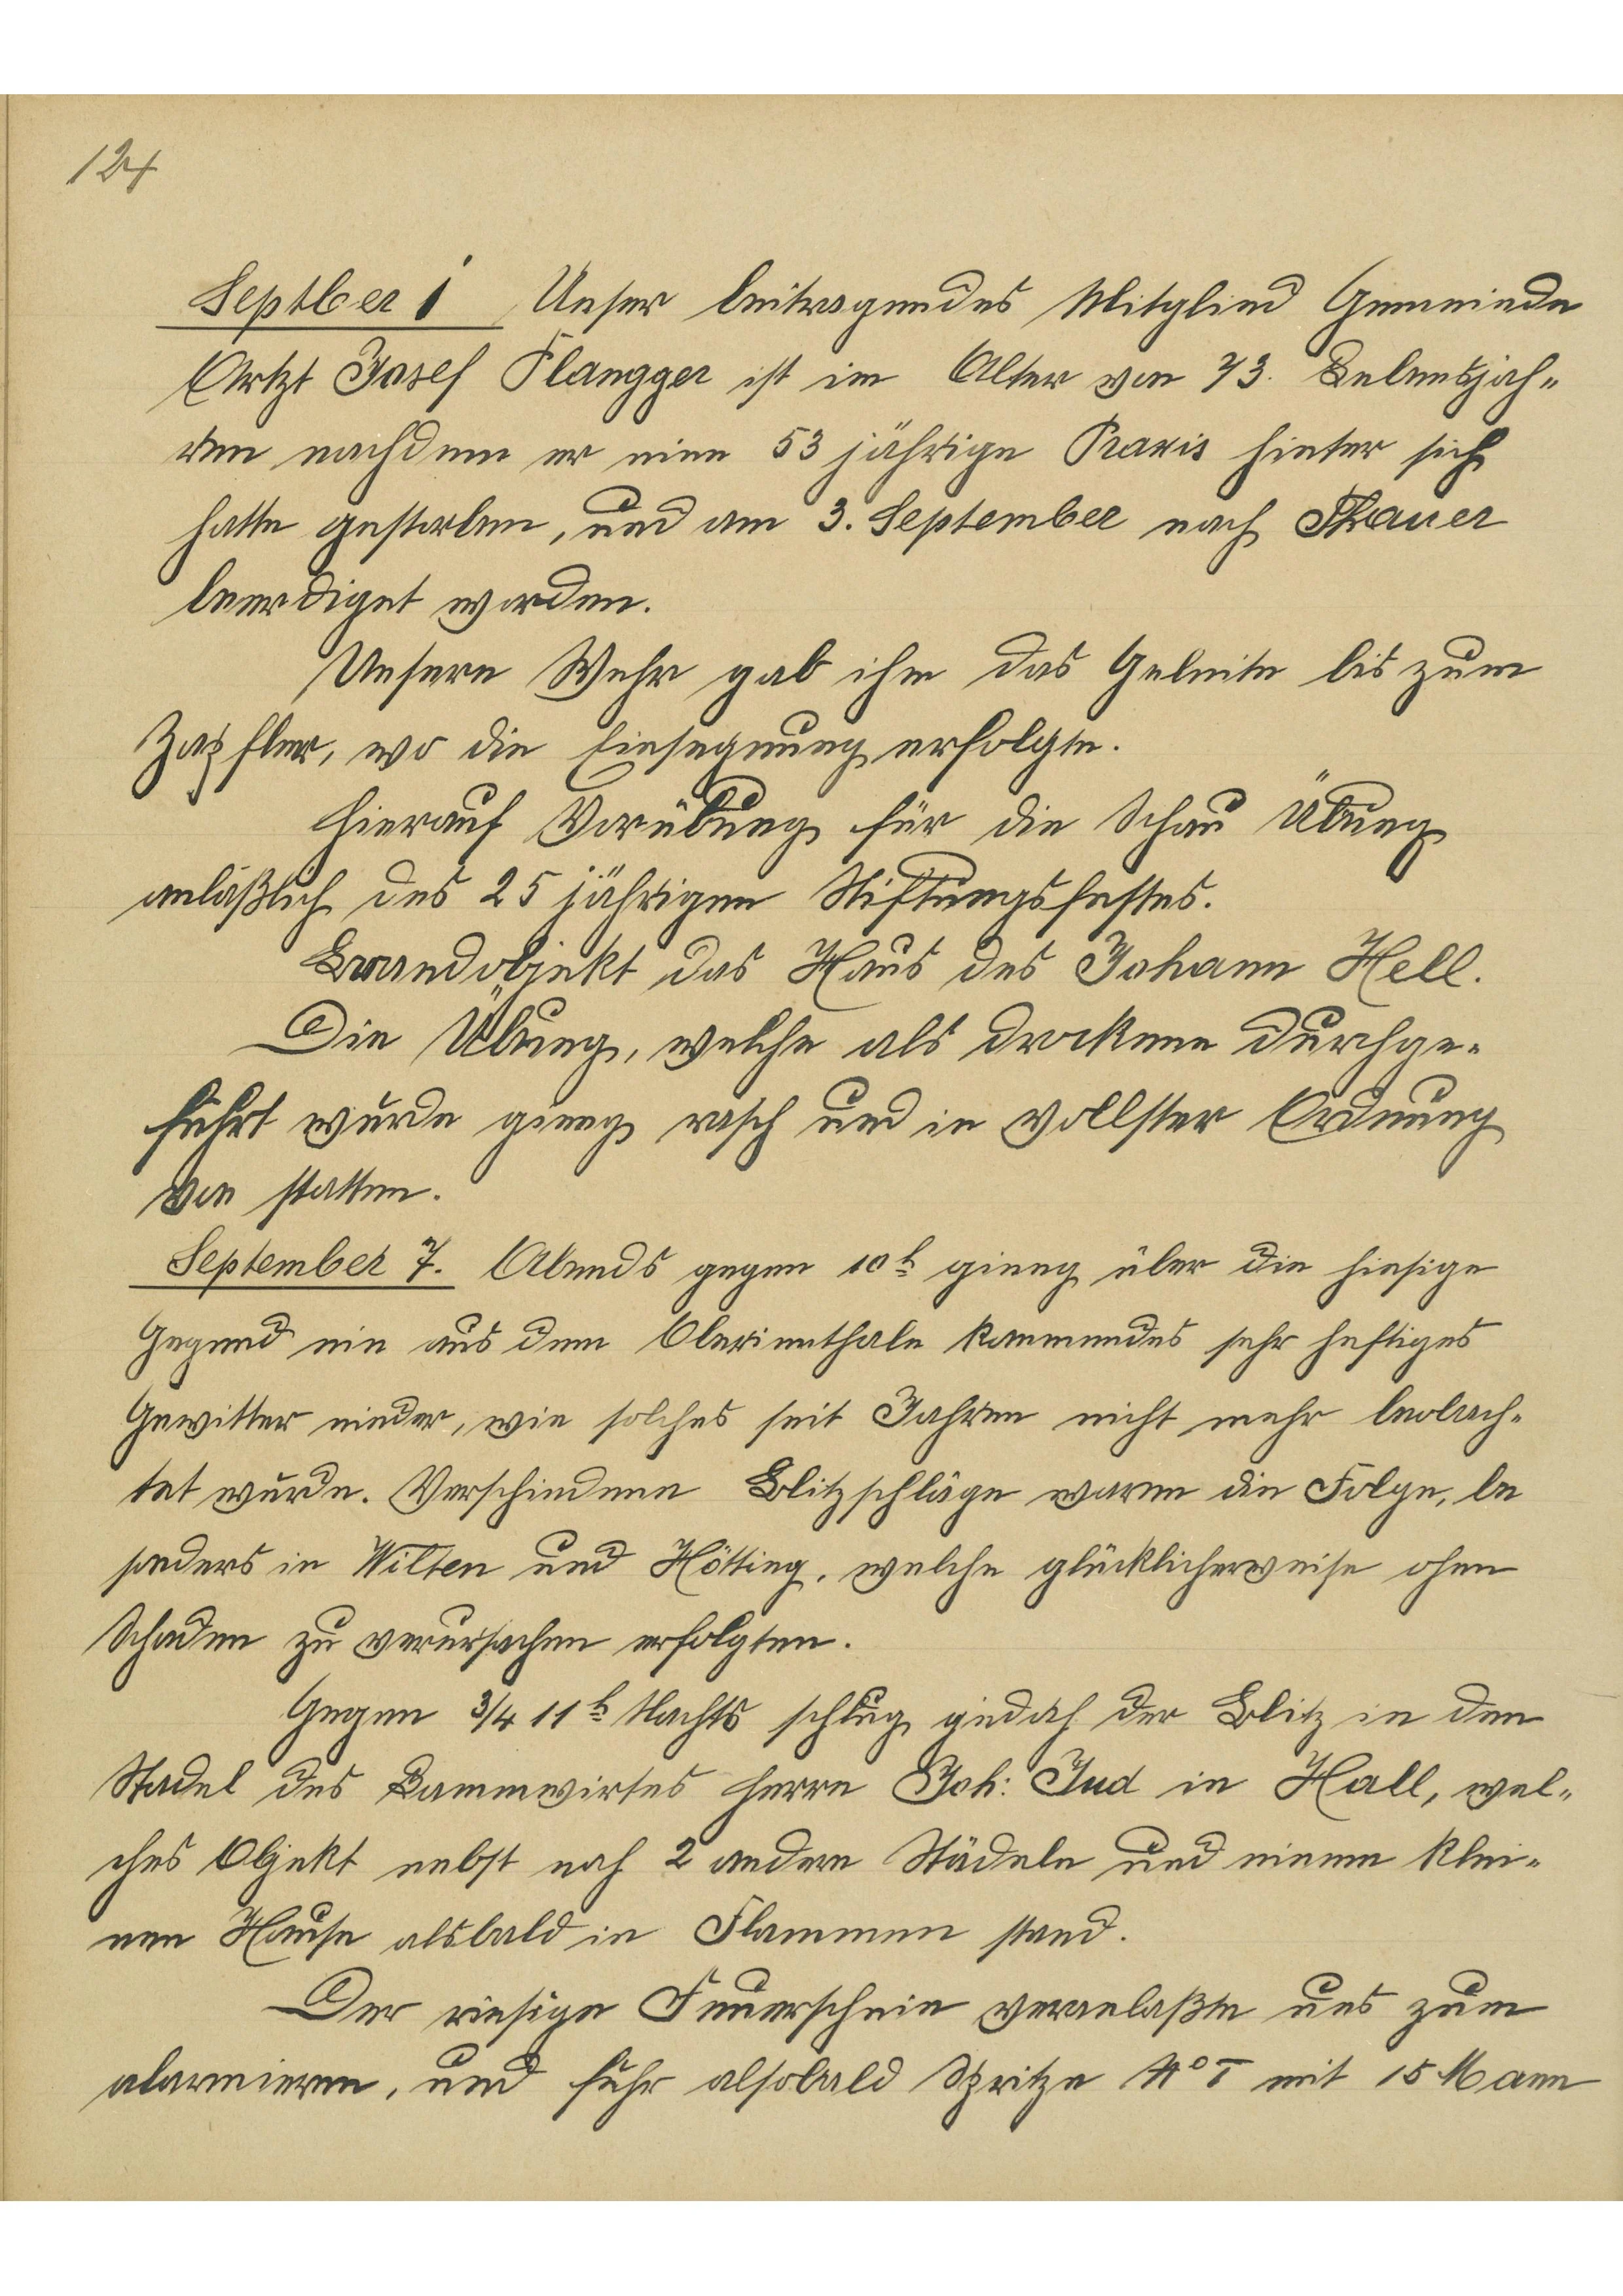 124
Septber 1 Unser beitragendes Mitglied Gemeinde
Artzt Josef Plangger ist im Alter von 73. Lebensjah-
ren nachdem er eine 53 jährige Praxis hinter sich
hatte gestorben, und am 3. September nach Thauer
beerdiget worden.
Unsere Wehr gab ihm das Geleite bis zum
Zapfler, wo die Einsegnung erfolgte.
Hierauf Vorübung für die Schau Übung
anläßlich des 25 jährigen Stiftungsfestes.
Brandobjekt das Haus des Johann Hell.
Die Übung, welche als drockene durchge-
führt wurde gieng rasch und in vollster Ordnung
von statten.
September 7. Abends gegen 10h gieng über die hiesige
Gegend ein aus dem Oberinnthale kommendes sehr heftiges
Gewitter nieder, wie solches seit Jahren nicht mehr beobach-
tet wurde. Verschiedene Blitzschläge waren die Folge, be
sonders in Wilten und Hötting, welche glücklicherweise ohne
Schaden zu verursachen erfolgten.
Gegen 3/4 11h Nachts schlug jedoch der Blitz in den
Stadel des Lammwirtes Herrn Joh: Jud in Hall, wel-
ches Objekt nebst noch 2 andern Städeln und einem klei-
nen Hause alsbald in Flammen stand.
Der riesige Feuerschein veranlaßte uns zum
alarmieren, und fuhr alsobald Spritze No I mit 15 Mann